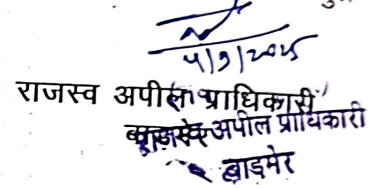 4/9/2025
राजस्व अपील प्राधिकारी
राजस्व अपील प्राधिकारी
बाड़मेर